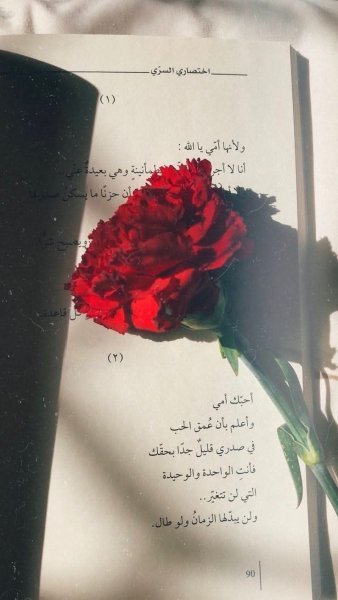 اختصاري السرّي
(١)
ولأنها أمّي يا الله :
أنا لا أجرؤ طمأنينةٍ وهي بعيدةٌ عنّي
أن حزنًا ما يسكن
ويصبح
(٢)
أحبّك أمي
وأعلم بأن عُمق الحب
في صدري قليلٌ جدًا بحقّك
فأنتِ الواحدة والوحيدة
التي لن تتغيّر..
ولن يبدّلها الزمانُ ولو طال.
90